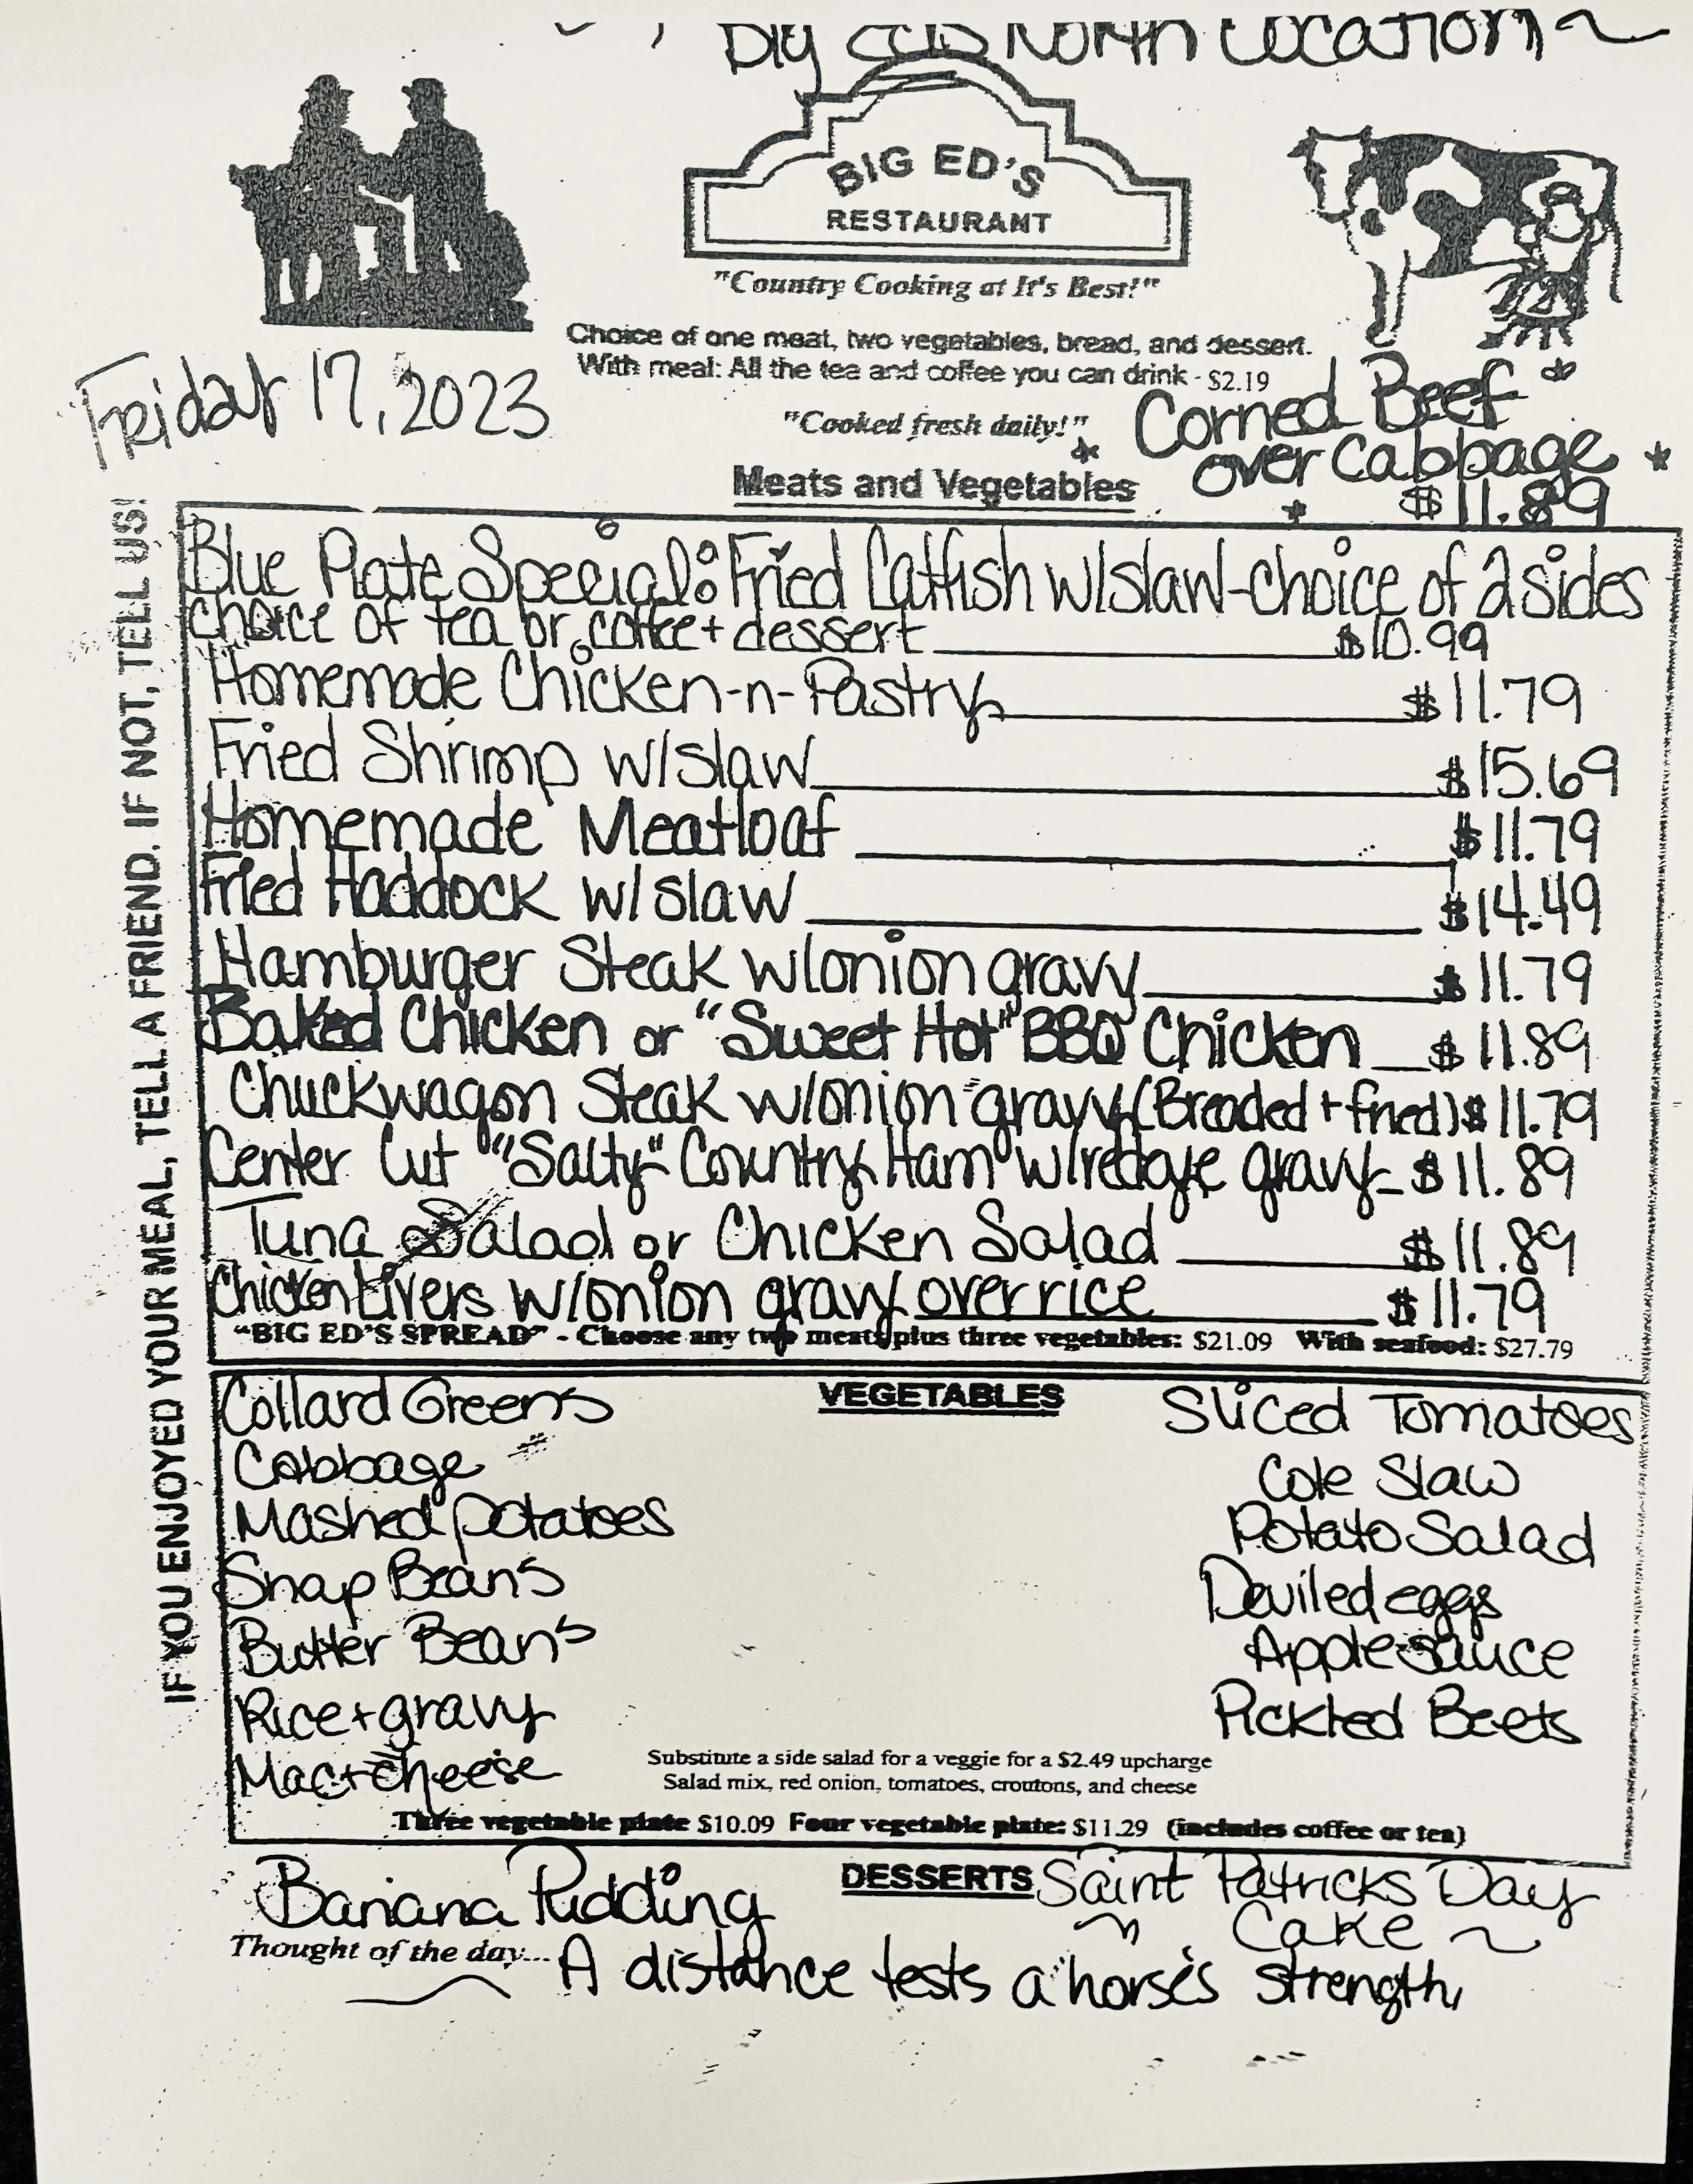 Big Ed's North Location ~
BIG ED'S
RESTAURANT
"Country Cooking at It's Best!"
Choice of one meat, two vegetables, bread, and dessert.
With meal: All the tea and coffee you can drink - $2.19
Friday 17, 2023
"Cooked fresh daily!"
Corned Beef
over Cabbage
$11.89
Meats and Vegetables
IF YOU ENJOYED YOUR MEAL, TELL A FRIEND. IF NOT, TELL US!
Blue Plate Special: Fried Catfish w/slaw-choice of 2 sides
choice of tea or coffee + dessert $10.99
Homemade Chicken-n-Pastry $11.79
Fried Shrimp w/slaw $15.69
Homemade Meatloaf $11.79
Fried Haddock w/slaw $14.49
Hamburger Steak w/onion gravy $11.79
Baked Chicken or "Sweet Hot" BBQ Chicken $11.89
Chuckwagon Steak w/onion gravy (Breaded + fried) $11.79
Center Cut "Salty" Country Ham w/redeye gravy $11.89
Tuna Salad or Chicken Salad $11.89
Chicken Livers w/onion gravy over rice $11.79
"BIG ED'S SPREAD" - Choose any two meats plus three vegetables: $21.09 With seafood: $27.79
VEGETABLES
Collard Greens
Cabbage
Mashed potatoes
Snap Bean's
Butter Bean's
Rice + gravy
Mac + cheese
Sliced Tomatoes
Cole Slaw
Potato Salad
Deviled eggs
Apple sauce
Pickled Beets
Substitute a side salad for a veggie for a $2.49 upcharge
Salad mix, red onion, tomatoes, croutons, and cheese
Three vegetable plate $10.09 Four vegetable plate: $11.29 (includes coffee or tea)
DESSERTS
Banana Pudding
Saint Patricks Day
Cake ~
Thought of the day... A distance tests a horse's strength,